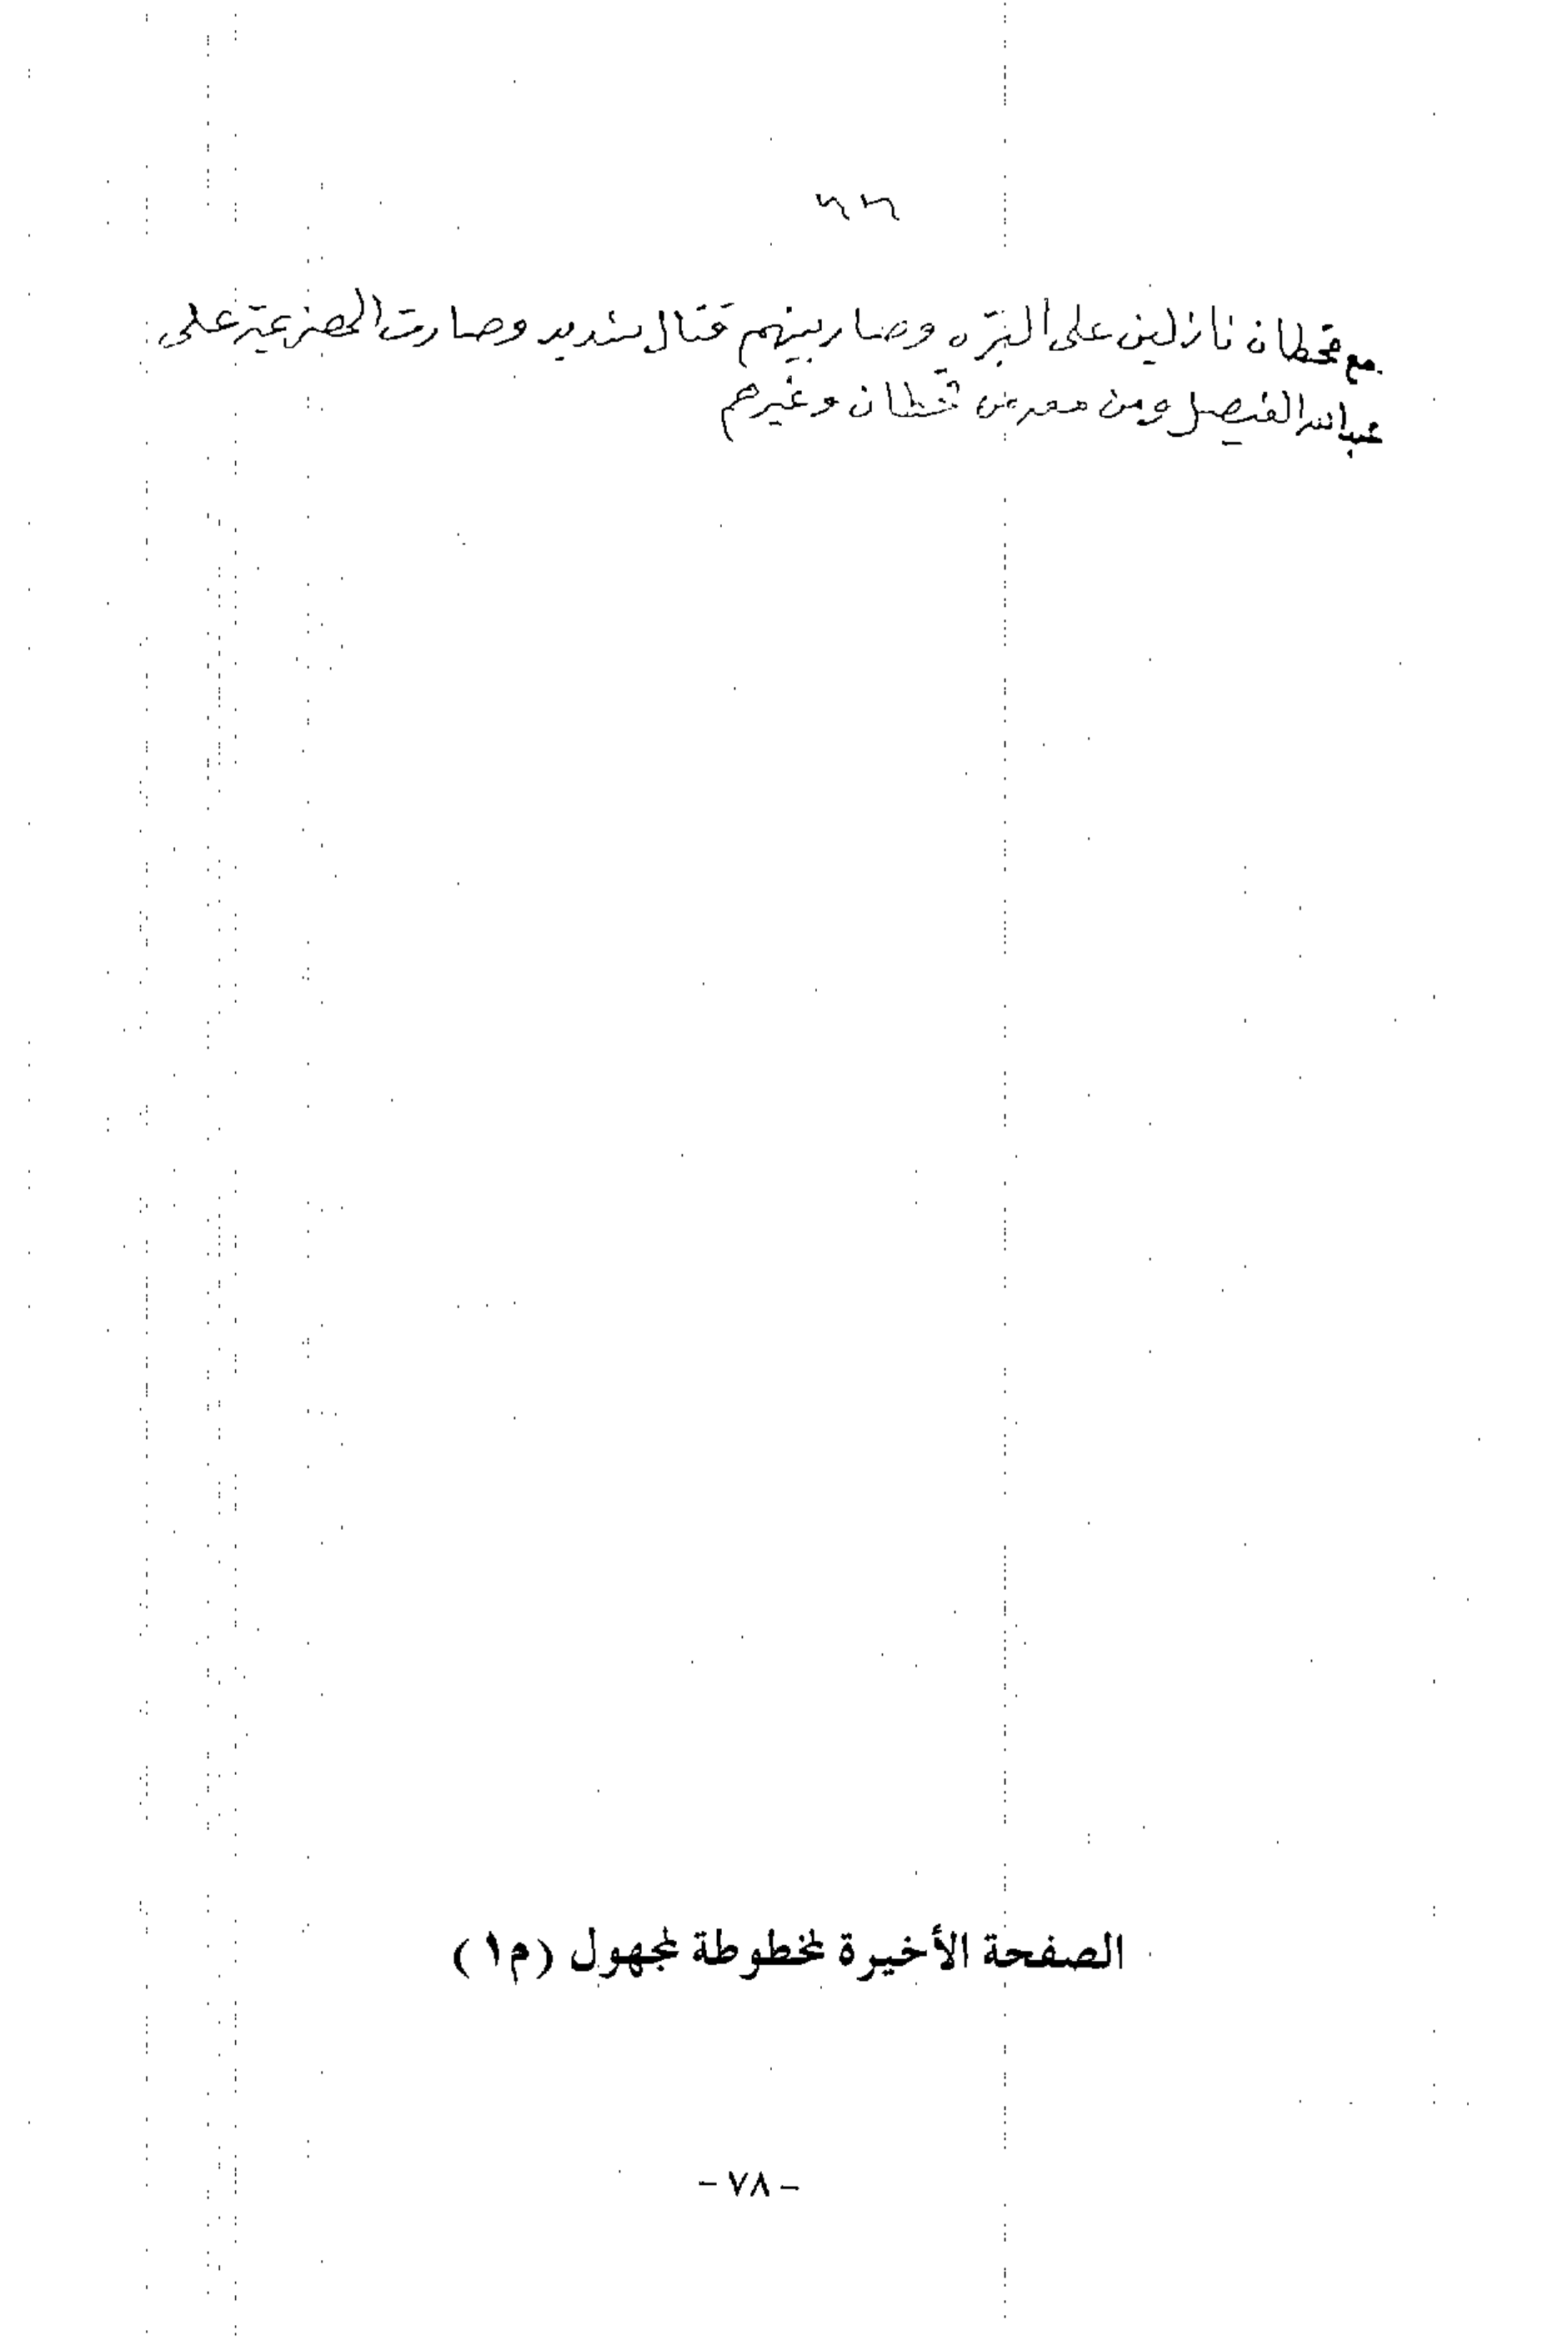 ٢٢
مع قحطان نازلين على البرّه وصار بينهم قتال شديد وصارت الهزيمة على
عبدالله الفيصل ومن معه من قحطان وغيرهم
الصفحة الأخيرة لمخطوطة لمجهول (م١)
- ٧٨ -